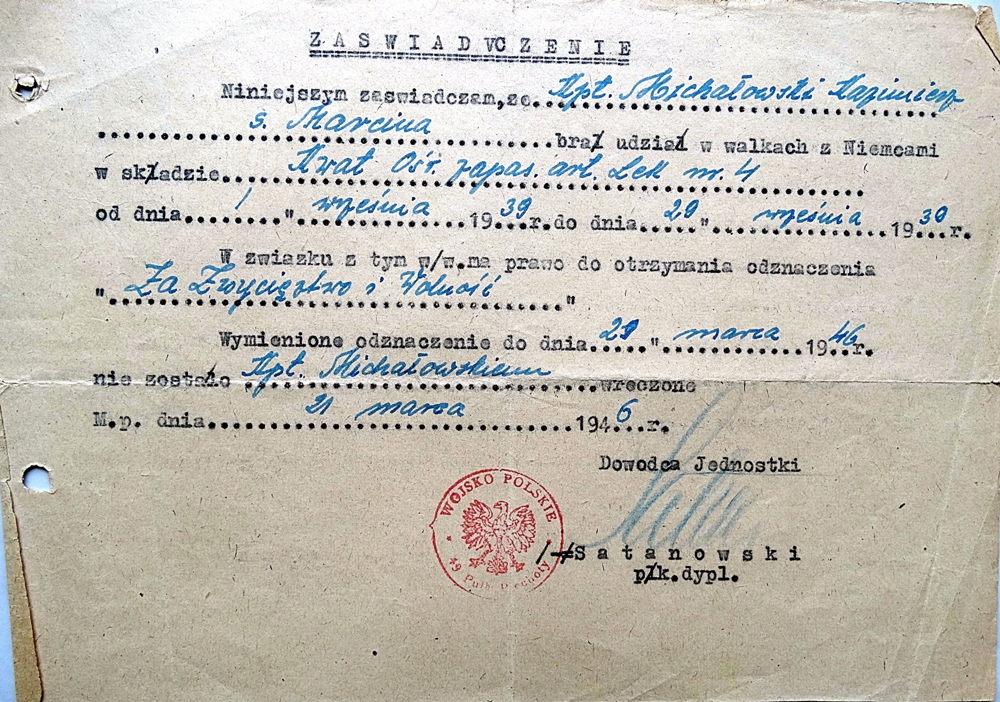 ZASWIADCZENIE
Niniejszym zaswiadczam,ze..Kpt. Michałowski Kazimierz
s. Marcina brał udział w walkach z Niemcami
w składzie... Kwat Ośr. zapas. art. Lek nr. 4
od dnia 1 " września 19 39 r.do dnia 29 " września 19 39 r.
W zwiazku z tym w/w.ma prawo do otrzymania odznaczenia
" Za Zwycięstwo i Wolność "
Wymienione odznaczenie do dnia 21 " marca 19 46 r.
nie zostało Kpt. Michałowskiemu wreczone
M.p. dnia 21 marca 194 6 r.
Dowodca Jednostki
WOJSKO POLSKIE
49 Pułk Piechoty
/-/Satanowski
płk.dypl.